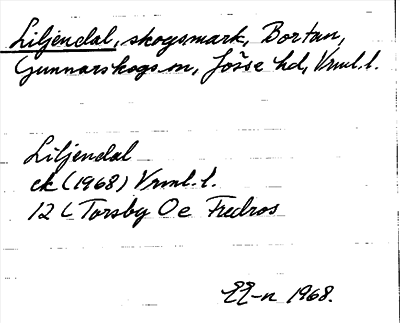 Liljendal, skogsmark, Bortan,
Gunnarskogs sn, Jösse hd, Vrml.l.
Liljendal
ek (1968) Vrml.l.
12 C Torsby Oe Fredros
EE-n 1968.